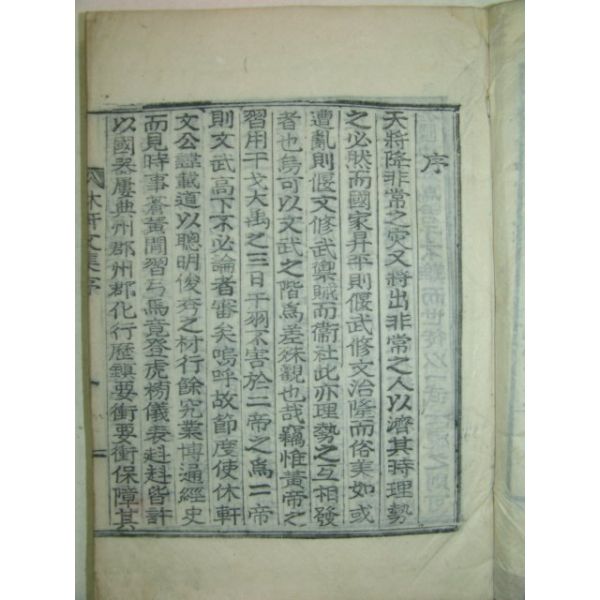 序
天將降非常之灾又將出非常之人以濟其時理勢
之必然而國家昇平則偃武修文治隆而俗美如或
遭亂則偃文修武禦賊而衛社此亦理勢之互相發
者也烏可以文武之階爲差殊觀也哉竊惟黃帝之
習用干戈大禹之三日干羽不害於二帝之爲二帝
則文武高下不必論者審矣嗚呼故節度使休軒
文公諱載道以聰明俊秀之材行餘究業博通經史
而見時事蒼黃閒習弓馬竟登虎榜儀表赳赳皆許
以國器屢典州郡州郡化行歷鎭要衝要衝保障其
休軒文集序
一